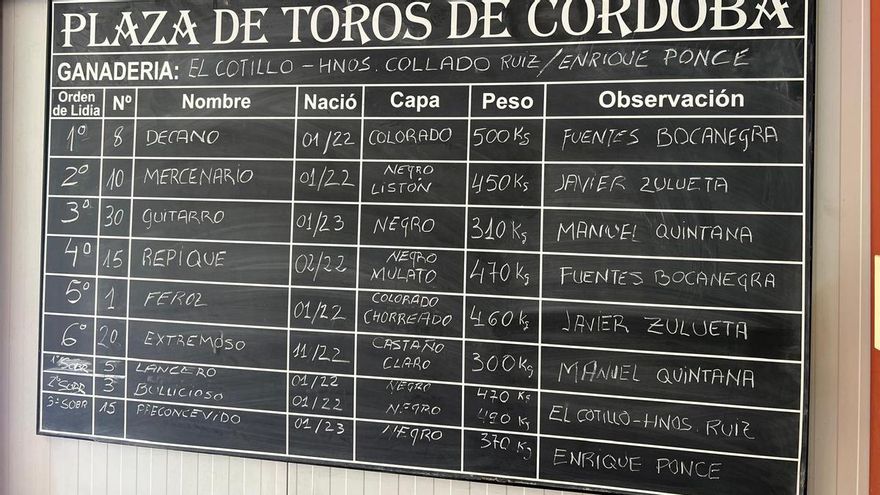 PLAZA DE TOROS DE CORDOBA
GANADERIA: EL COTILLO - HNOS. COLLADO RUIZ / ENRIQUE PONCE
Orden de Lidia Nº Nombre Nació Capa Peso Observación
1º 8 DECANO 01/22 COLORADO 500 Ks FUENTES BOCANEGRA
2º 10 MERCENARIO 01/22 NEGRO LISTÓN 450 Ks JAVIER ZULUETA
3º 30 GUITARRO 01/23 NEGRO 310 Kg MANUEL QUINTANA
4º 15 REPIQUE 02/22 NEGRO MULATO 470 Kg FUENTES BOCANEGRA
5º 1 FEROZ 01/22 COLORADO CHORREADO 460 Kg JAVIER ZULUETA
6º 20 EXTREMOSO 11/22 CASTAÑO CLARO 300 Kg MANUEL QUINTANA
1º SOBR 5 LANCERO 01/22 NEGRO 470 Kg
2º SOBR 3 BULLICIOSO 01/22 NEGRO 480 Kg EL COTILLO - HNOS. RUIZ
3º SOBR 15 PRECONCEVIDO 01/23 NEGRO 370 Kg ENRIQUE PONCE